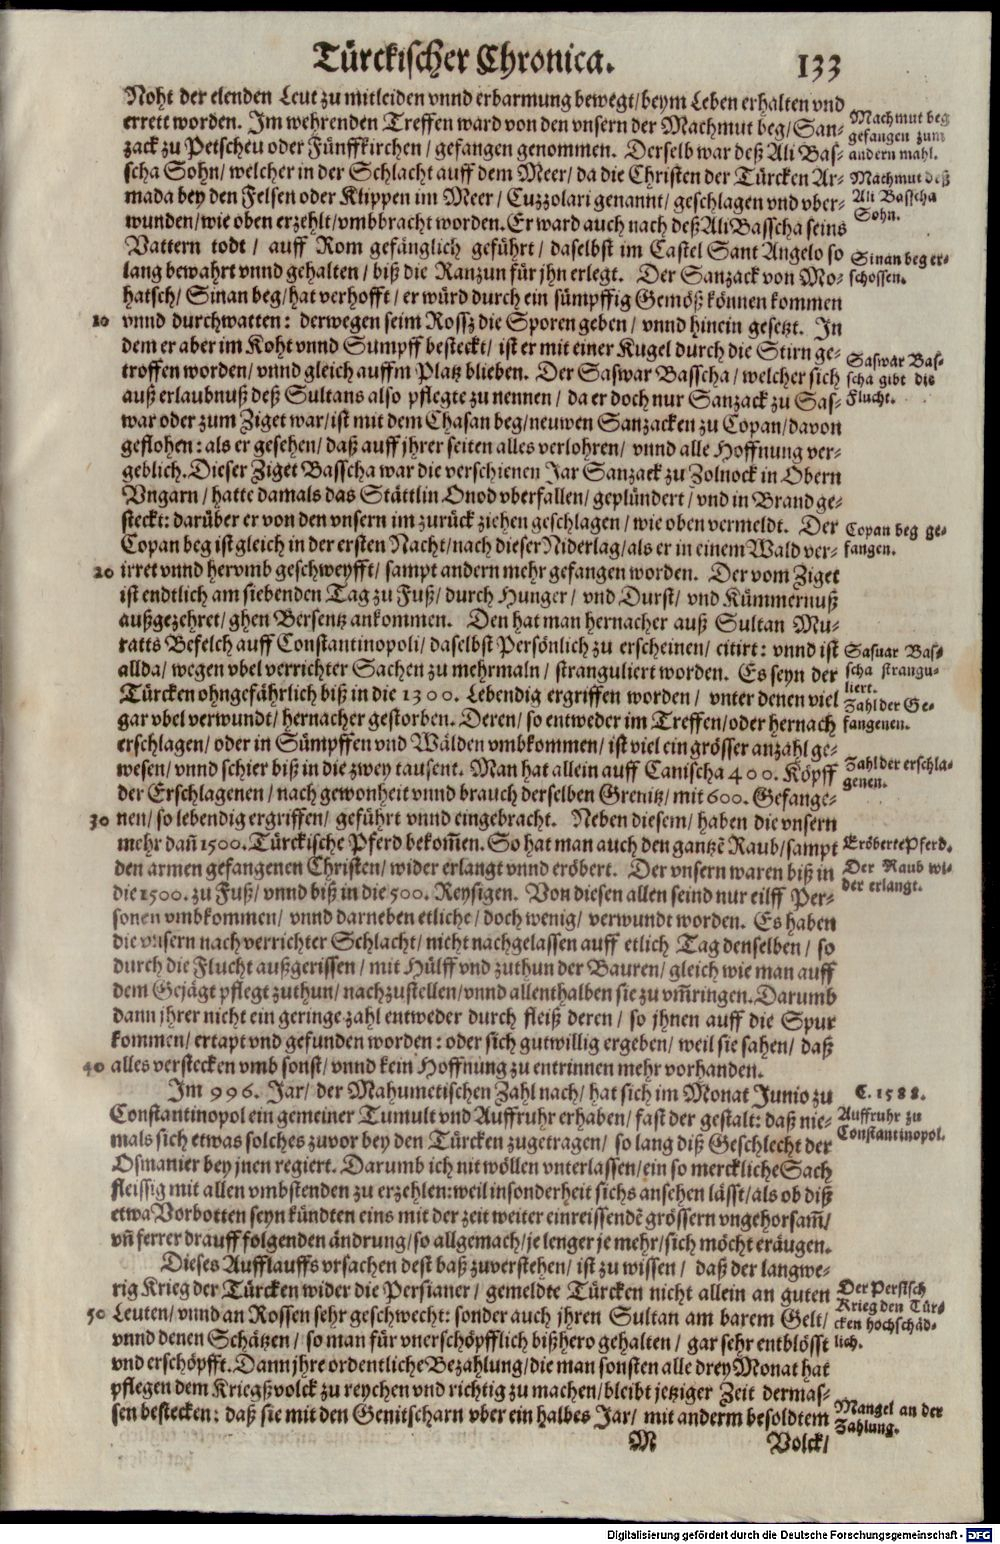 Türckischer Chronica.
133
Noht der elenden Leut zu mitleiden vnnd erbarmung bewegt/ beym Leben erhalten vnd
errett worden. Im wehrenden Treffen ward von den vnsern der Machmut beg/ San-
zack zu Petscheu oder Fünffkirchen/ gefangen genommen. Derselb war deß Ali Bas-
scha Sohn/ welcher in der Schlacht auff dem Meer/ da die Christen der Türcken Ar-
mada bey den Felsen oder Klippen im Meer/ Cuzzolari genannt/ geschlagen vnd vber-
wunden/ wie oben erzehlt/ vmbbracht worden. Er ward auch nach deß Ali Basscha seins
Vattern todt/ auff Rom gefänglich geführt/ daselbst im Castel Sant Angelo so
lang bewahrt vnnd gehalten/ biß die Ranzun für jhn erlegt. Der Sanzack von Mo-
hatsch/ Sinan beg/ hat verhofft/ er würd durch ein sümpffig Gemöß können kommen
10 vnnd durchwatten: derwegen seim Rossz die Sporen geben/ vnnd hinein gesetzt. In
dem er aber im Koht vnnd Sumpff besteckt/ ist er mit einer Kugel durch die Stirn ge-
troffen worden/ vnnd gleich auffm Platz blieben. Der Saswar Basscha/ welcher sich
auß erlaubnuß deß Sultans also pflegte zu nennen/ da er doch nur Sanzack zu Sas-
war oder zum Ziget war/ ist mit dem Chasan beg/ neuwen Sanzacken zu Copan/ davon
geflohen: als er gesehen/ daß auff jhrer seiten alles verlohren/ vnnd alle Hoffnung ver-
geblich. Dieser Ziget Basscha war die verschienen Jar Sanzack zu Zolnock in Obern
Vngarn/ hatte damals das Stättlin Onod vberfallen/ geplündert/ vnd in Brand ge-
steckt: darüber er von den vnsern im zurück ziehen geschlagen/ wie oben vermeldt. Der
Copan beg ist gleich in der ersten Nacht/ nach dieser Niderlag/ als er in einem Wald ver-
20 irret vnnd hervmb geschweyfft/ sampt andern mehr gefangen worden. Der vom Ziget
ist endtlich am siebenden Tag zu Fuß/ durch Hunger/ vnd Durst/ vnd Kümmernuß
außgezehret/ ghen Bersentz ankommen. Den hat man hernacher auß Sultan Mu-
ratts Befelch auff Constantinopoli/ daselbst Persönlich zu erscheinen/ citirt: vnnd ist
allda/ wegen vbel verrichter Sachen zu mehrmaln/ stranguliert worden. Es seyn der
Türcken ohngefährlich biß in die 1300. Lebendig ergriffen worden/ vnter denen viel
gar vbel verwundt/ hernacher gestorben. Deren/ so entweder im Treffen/ oder hernach
erschlagen/ oder in Sümpffen vnd Wälden vmbkommen/ ist viel ein grösser anzahl ge-
wesen/ vnnd schier biß in die zwey tausent. Man hat allein auff Canischa 400. Köpff
der Erschlagenen/ nach gewonheit vnnd brauch derselben Grenitz/ mit 600. Gefange-
30 nen/ so lebendig ergriffen/ geführt vnnd eingebracht. Neben diesem/ haben die vnsern
mehr dañ 1500. Türckische Pferd bekom̃en. So hat man auch den gantzẽ Raub/ sampt
den armen gefangenen Christen/ wider erlangt vnnd eröbert. Der vnsern waren biß in
die 1500. zu Fuß/ vnnd biß in die 500. Reysigen. Von diesen allen seind nur eilff Per-
sonen vmbkommen/ vnnd darneben etliche/ doch wenig/ verwundt worden. Es haben
die vnsern nach verrichter Schlacht/ nicht nachgelassen auff etlich Tag denselben/ so
durch die Flucht außgerissen/ mit Hülff vnd zuthun der Bauren/ gleich wie man auff
dem Gejägt pflegt zuthun/ nachzustellen/ vnnd allenthalben sie zu vm̃ringen. Darumb
dann jhrer nicht ein geringe zahl entweder durch fleiß deren/ so jhnen auff die Spur
kommen/ ertapt vnd gefunden worden: oder sich gutwillig ergeben/ weil sie sahen/ daß
40 alles verstecken vmb sonst/ vnnd kein Hoffnung zu entrinnen mehr vorhanden.
Im 996. Jar/ der Mahumetischen Zahl nach/ hat sich im Monat Junio zu
Constantinopol ein gemeiner Tumult vnd Auffruhr erhaben/ fast der gestalt: daß nie-
mals sich etwas solches zuvor bey den Türcken zugetragen/ so lang diß Geschlecht der
Osmanier bey jnen regiert. Darumb ich nit wöllen vnterlassen/ ein so merckliche Sach
fleissig mit allen vmbstenden zu erzehlen: weil insonderheit sichs ansehen lässt/ als ob diß
etwa Vorbotten seyn kündten eins mit der zeit weiter einreissendẽ grössern vngehorsam̃/
vñ ferrer drauff folgenden ändrung/ so allgemach/ je lenger je mehr/ sich möcht eräugen.
Dieses Aufflauffs vrsachen dest baß zuverstehen/ ist zu wissen/ daß der langwe-
rig Krieg der Türcken wider die Persianer/ gemeldte Türcken nicht allein an guten
50 Leuten/ vnnd an Rossen sehr geschwecht: sonder auch jhren Sultan am barem Gelt/
vnnd denen Schätzen/ so man für vnerschöpfflich bißhero gehalten/ gar sehr entblösst
vnd erschöpfft. Dann jhre ordentliche Bezahlung/ die man sonsten alle drey Monat hat
pflegen dem Kriegßvolck zu reychen vnd richtig zu machen/ bleibt jetziger Zeit dermas-
sen bestecken: daß sie mit den Genitscharn vber ein halbes Jar/ mit anderm besoldtem
M
Volck/
Machmut beg
gefangen zum
andern mahl.
Machmut deß
Ali Basscha
Sohn.
Sinan beg er-
schossen.
Saswar Bas-
scha gibt die
Flucht.
Copan beg ge-
fangen.
Sasuar Bas-
scha strangu-
liert.
Zahl der Ge-
fangenen.
Zahl der erschla-
genen.
Eröberte Pferd.
Der Raub wi-
der erlangt.
C. 1588.
Auffruhr zu
Constantinopol.
Der Persisch
Krieg den Tür-
cken hochschäd-
lich.
Mangel an der
Zahlung.
Digitalisierung gefördert durch die Deutsche Forschungsgemeinschaft - DFG